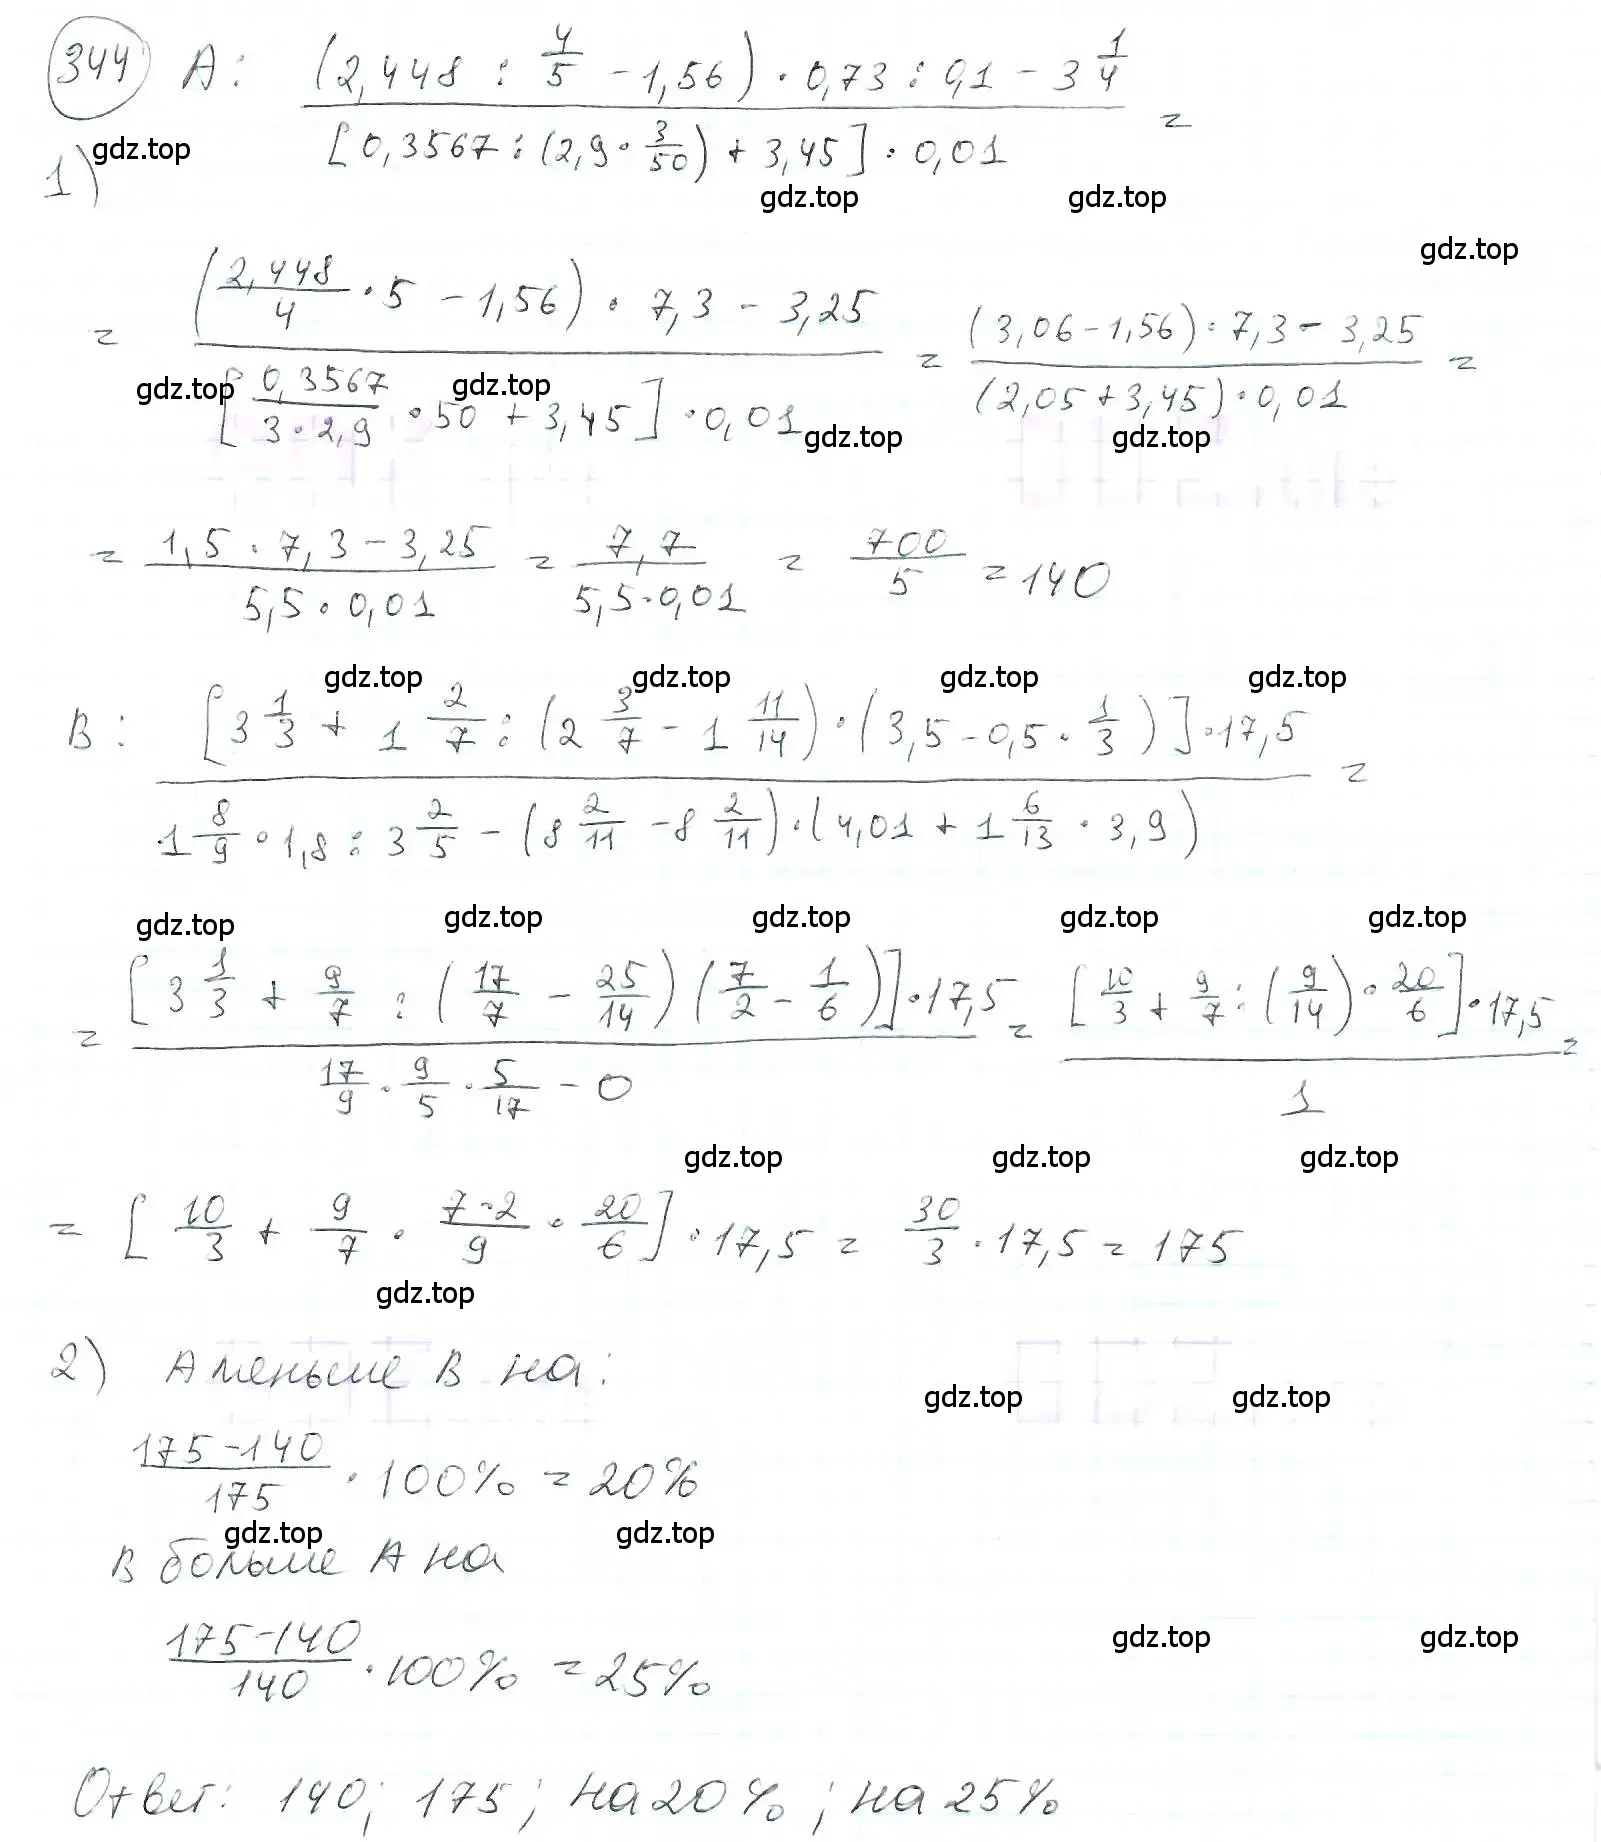 344 A: (2,448 : 4/5 - 1,56) · 0,73 : 0,1 - 3 1/4 / [0,3567 : (2,9 · 3/50) + 3,45] · 0,01 =
gdz.top
1)
gdz.top gdz.top
gdz.top
= (2,448/4 · 5 - 1,56) · 7,3 - 3,25 / [0,3567/3·2,9 · 50 + 3,45] · 0,01 = (3,06 - 1,56) · 7,3 - 3,25 / (2,05 + 3,45) · 0,01 =
gdz.top gdz.top
gdz.top gdz.top
= 1,5 · 7,3 - 3,25 / 5,5 · 0,01 = 7,7 / 5,5·0,01 = 700/5 = 140
gdz.top gdz.top gdz.top gdz.top
B: [3 1/3 + 1 2/7 : (2 3/7 - 1 11/14) · (3,5 - 0,5 · 1/3)] · 17,5 / 1 8/9 · 1,8 : 3 2/5 - (8 2/11 - 8 2/11) · (4,01 + 1 6/13 · 3,9) =
gdz.top gdz.top gdz.top gdz.top gdz.top
= [3 1/3 + 9/7 : (17/7 - 25/14) (7/2 - 1/6)] · 17,5 / 17/9 · 9/5 · 5/17 - 0 = [10/3 + 9/7 : (9/14) · 20/6] · 17,5 / 1 =
gdz.top gdz.top gdz.top
= [10/3 + 9/7 · 7·2/9 · 20/6] · 17,5 = 30/3 · 17,5 = 175
gdz.top
2) A меньше B на:
gdz.top gdz.top
175-140/175 · 100% = 20%
gdz.top gdz.top
B больше A на
175-140/140 · 100% = 25%
gdz.top gdz.top
Ответ: 140; 175; на 20%; на 25%